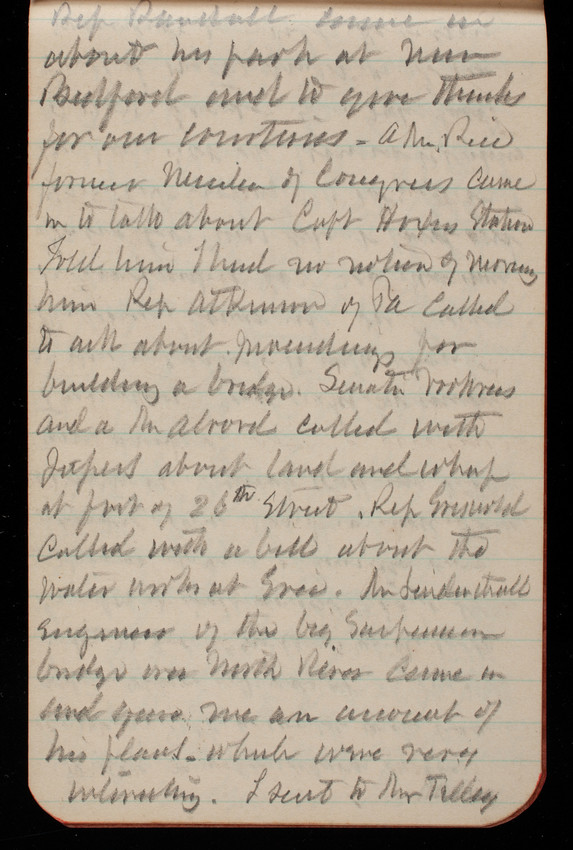 Rep Randall came in
about his park at New
Bedford and to give thanks
for our courtesies - A Mr. Rice
former Member of Congress came
in to talk about Capt Station
Told him I had no notion of moving
him Rep Atkinson of Pa called
to ask about proceedings for
building a bridge. Senator Voorhees
and a Mr Alvord called with
papers about land and wharf
at foot of 26th Street. Rep Griswold
called with a bill about the
water works at Erie. Mr Lindenthall
Engineer of the big Suspension
bridge over North River came in
and gave me an account of
his plans - which were very
interesting. I sent to Mr Tilley